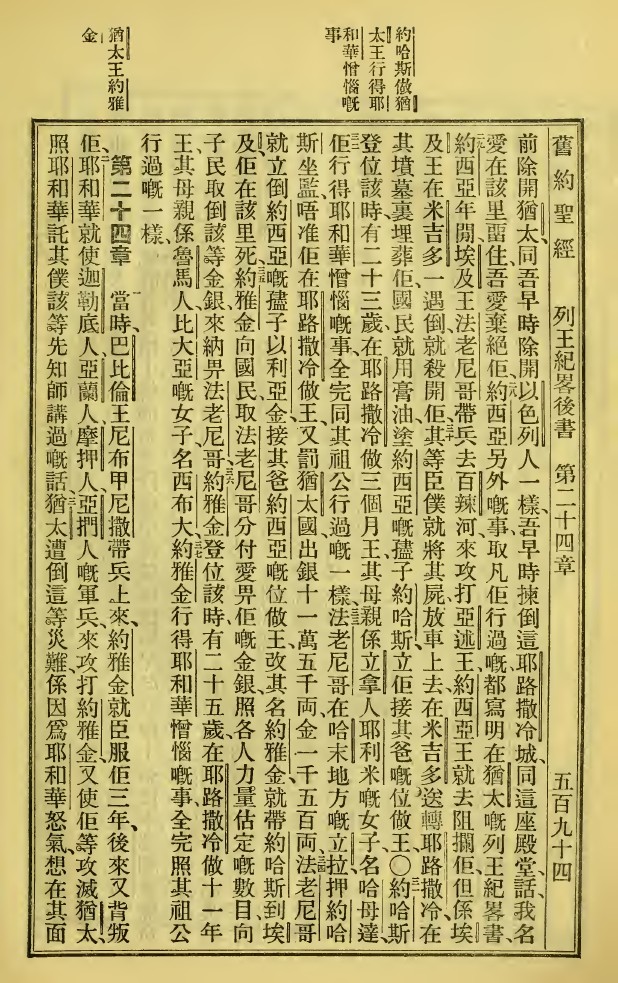 約哈斯倣猶
太王行得耶
和華憎惱嘅
事
猶太王約雅
金
舊約聖經 列王紀畧後書 第二十四章 五百九十四
前除開猶太、同吾早時除開以色列人一樣、吾早時揀倒這耶路撒冷城、同這座殿堂、話、我名
愛在該里畱住、吾愛棄絕佢、約西亞另外嘅事、取凡佢行過嘅、都寫明在猶太嘅列王紀畧書、
約西亞年間、埃及王法老尼哥帶兵去百辣河、來攻打亞述王、約西亞王就去阻攔佢、但係埃
及王在米吉多一遇倒就殺開佢、其等臣僕就將其屍放車上去、在米吉多送轉耶路撒冷、在
其墳墓裏埋葬佢、國民就用膏油、塗約西亞嘅𡥧子約哈斯、立佢接其爸嘅位做王、〇約哈斯
登位該時、有二十三歲、在耶路撒冷做三個月王、其母親係立拿人耶利米嘅女子、名哈母達、
佢行得耶和華憎惱嘅事、全完同其祖公行過嘅一樣、法老尼哥在哈末地方嘅立拉押約哈
斯坐監、唔准佢在耶路撒冷做王、又罰猶太國出銀十一萬五千両、金一千五百両、法老尼哥
就立倒約西亞嘅𡥧子以利亞金、接其爸約西亞嘅位做王、改其名約雅金、就帶約哈斯到埃
及、佢在該里死、約雅金向國民取法老尼哥分付愛畀佢嘅金銀、照各人力量估定嘅數目、向
子民取倒該等金銀、來納畀法老尼哥、約雅金登位該時、有二十五歲、在耶路撒冷做十一年
王、其母親係魯馬人比大亞嘅女子、名西布大、約雅金行得耶和華憎惱嘅事、全完照其祖公
行過嘅一樣、
第二十四章 當時、巴比倫王尼布甲尼撒帶兵上來、約雅金就臣服佢三年、後來又背叛
佢、耶和華就使迦勒底人、亞蘭人、摩押人、亞捫人嘅軍兵、來攻打約雅金、又使佢等攻滅猶太、
照耶和華託其僕該等先知師講過嘅話、猶太遭倒這等災難、係因爲耶和華怒氣、想在其面